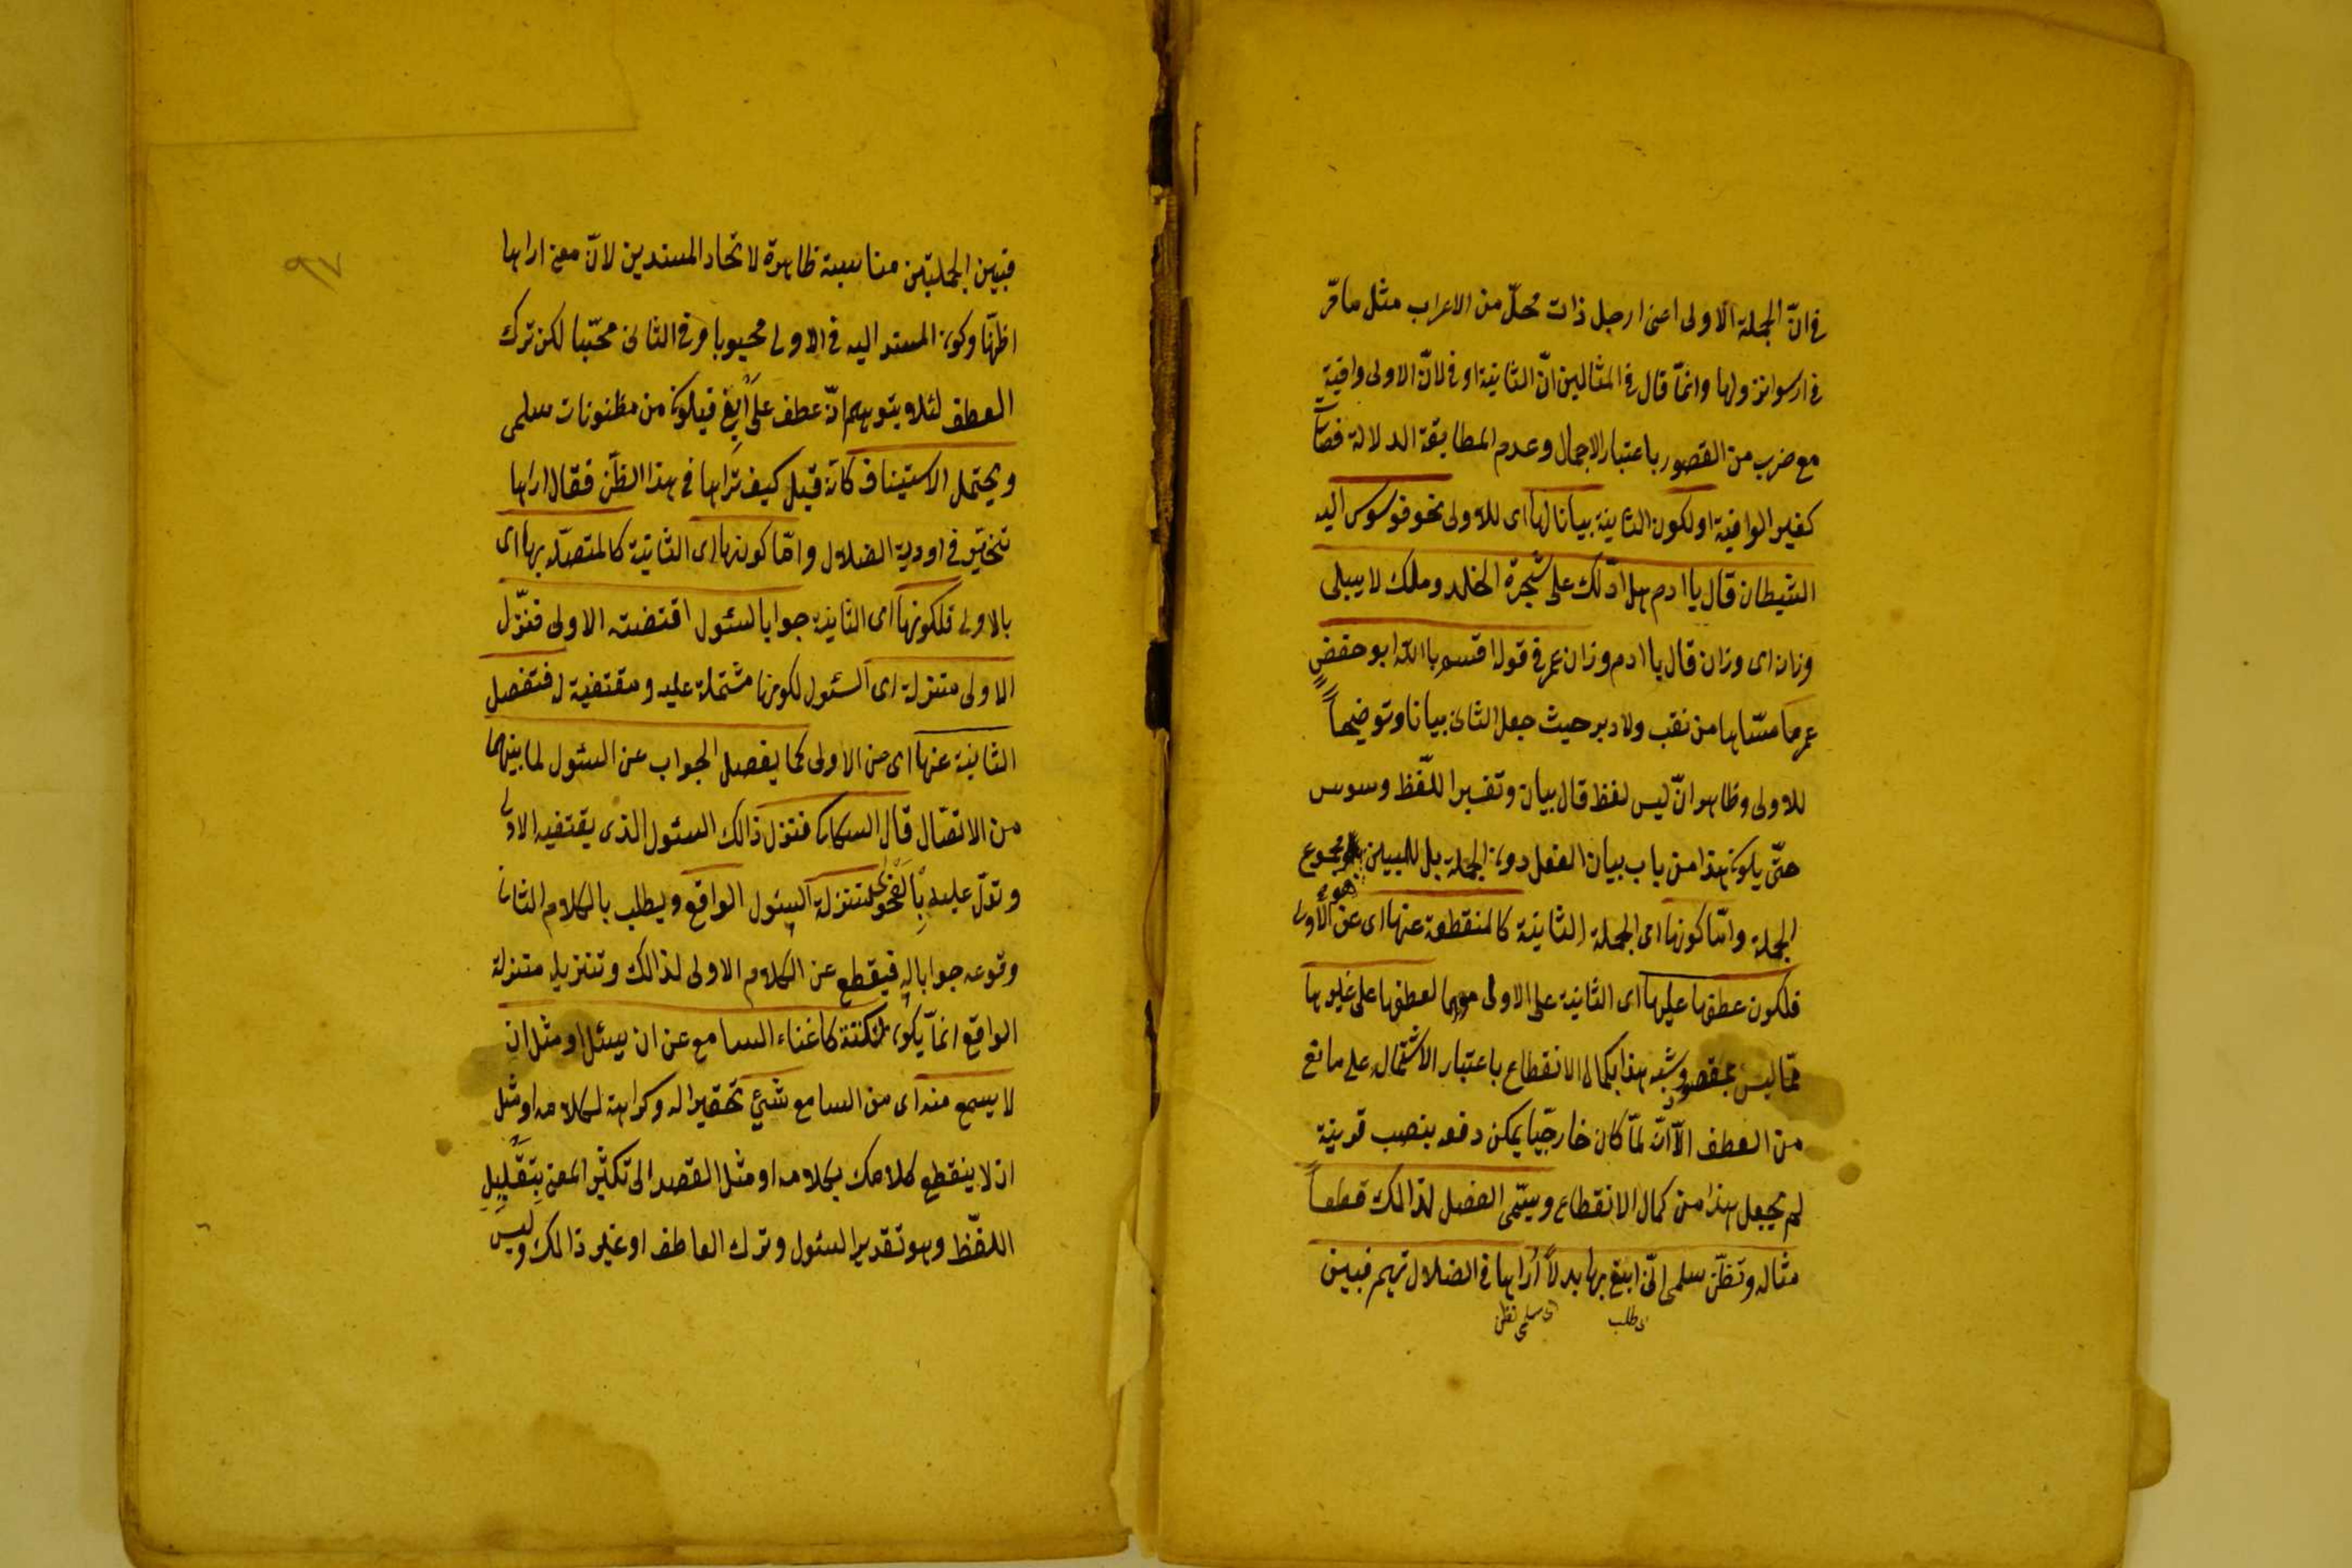 فى انّ الجملة الاولى اعنى ارحل ذات محلّ من الاعراب مثل ما مرّ
فى ارسوا نزولها وانمّا قال فى المثالين انّ الثانية اوفى لانّ الاولى وافية
مع ضرب من القصور باعتبار الاجمال وعدم المطابقة الدلالة فصات
كغير الوافية او لكون الثانية بيانا لها اى للاولى نحو فوسوس اليه
الشيطان قال ياادم هل ادّلك على شجرة الخلد وملك لا يبلى
وزان اى وزان قال ياادم وزان عمر فى قوله اقسم باالله ابو حفض
عمر ما مسّها من نقب ولا دبر حيث جعل الثانى بيانا وتوضيحاً
للاولى وظاهر انّ ليس لفظ قال بيان وتفسيرا للّفظ وسوس
حتّى يكون هذا من باب بيان الفعل دون الجملة بل المبين هو مجموع
الجملة وامّا كونها اى الجملة الثانية كالمنقطعة عنها اى عن الأولى
فلكون عطفها عليها اى الثانية على الاولى موهما لعطفها على غيرها
ممّا ليس بمقصود وشبه هذا بكمال الانقطاع باعتبار الاشتماله على مانع
من العطف الاّ انّه لمّا كان خارجّيا يمكن دفعه بنصب قرينة
لم يجعل هذا من كمال الانقطاع ويسمّى الفصل لذالك قطعاً
مثاله وتظنّ سلمى انّى ابغى بها بدلاً أُراها فى الضلال تهيم فبين
اى طلب
اى سلمى تظن
٩٧
فبين الجملتين مناسبة ظاهرة لاتحاد المسندين لانّ معنى اراها
اظنّها وكون المسند اليه فى الاولى محبوبا وفى الثانى محبّا لكن ترك
العطف لئلا يتوهم انّه عطف على ابغى فيكون من مظنونات سلمى
ويحتمل الاستيناف كانّه قيل كيف تراها فى هذا الظّن فقال اراها
تتحيّر فى اودية الضلال وامّا كونها اى الثانية كالمتصّله بها اى
بالاولى فلكونها اى الثانية جوابا لسئول اقتضته الاولى فتنزّل
الاولى منزلة اى السئول لكونها مشتملة عليه ومقتضية له فتفصل
الثانية عنها اى من الاولى كما يفصل الجواب عن السئول لما بينهما
من الاتصّال قال السكاكى فتنزل ذالك السئول الذى يقتضيه الاولى
وتدلّ عليه بالفحوى منزلة السئول الواقع ويطلب بالكلام الثانى
وقوعه جوابا له فيقطع عن الكلام الاولى لذالك وتنزيله منزلة
الواقع انمّا يكون لنكتة كاغناء السامع عن ان يسئل او مثل ان
لا يسمع منه اى من السامع شئ تحقيرا له وكراهة لكلامه او مثل
ان لا ينقطع كلامك بكلامه او مثل القصد الى تكثير المعنى بتقليل
اللفّظ وهو تقدير السئول وترك العاطف او غير ذالك وليس